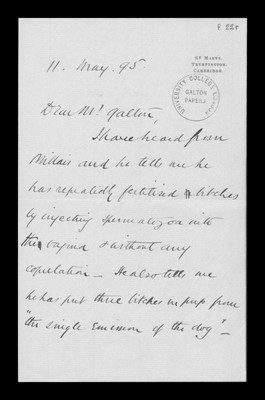 F 22r
37 
TRUMPINGTON,
CAMBRIDGE.
UNIVERSITY COLLEGE
GALTON
PAPERS
11. May. 95.
Dear Mr. Galton,
I have heard from
Millais and he tells me he
has repeatedly fertilised bitches
by injecting spermatozoa into
the vagina & without any
copulation - He also tells me
he has put three bitches in pup from
"the single emission of the dog" -